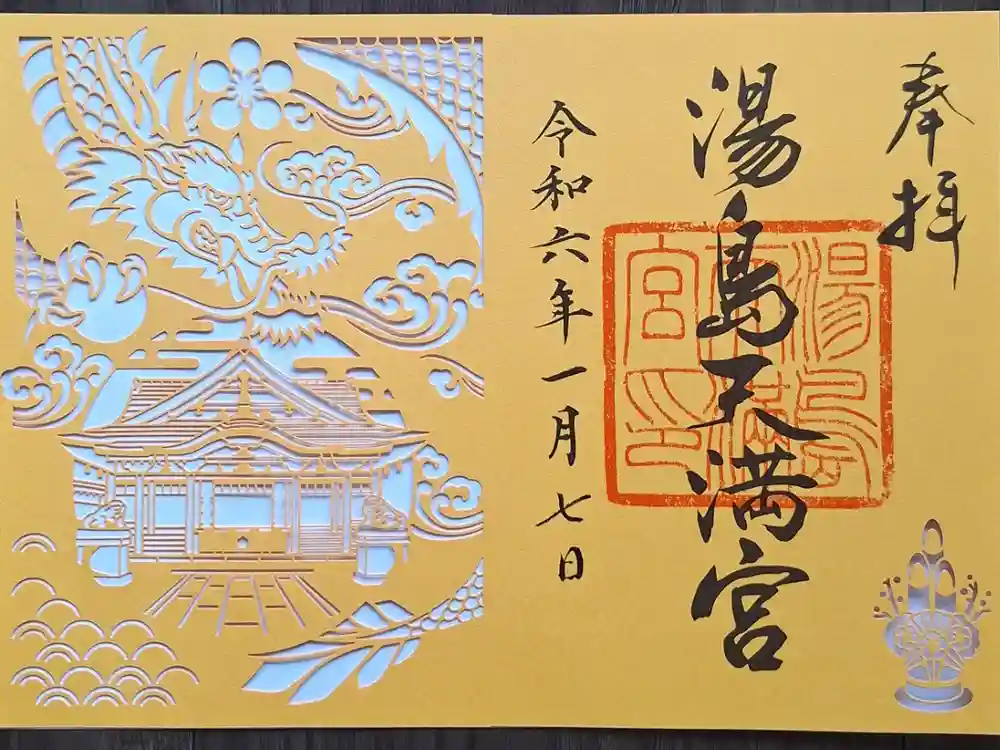 奉拝
湯島天満宮
令和六年一月七日
湯島
天満
宮印